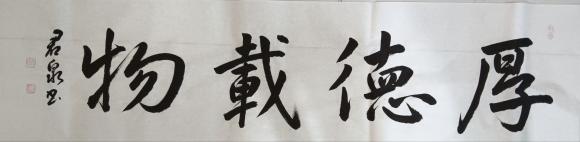 厚德載物
君泉书